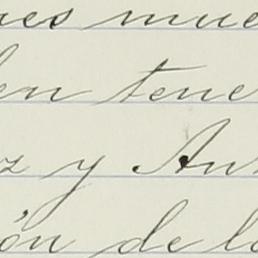 ues mue
en tene
z y An
ón de l